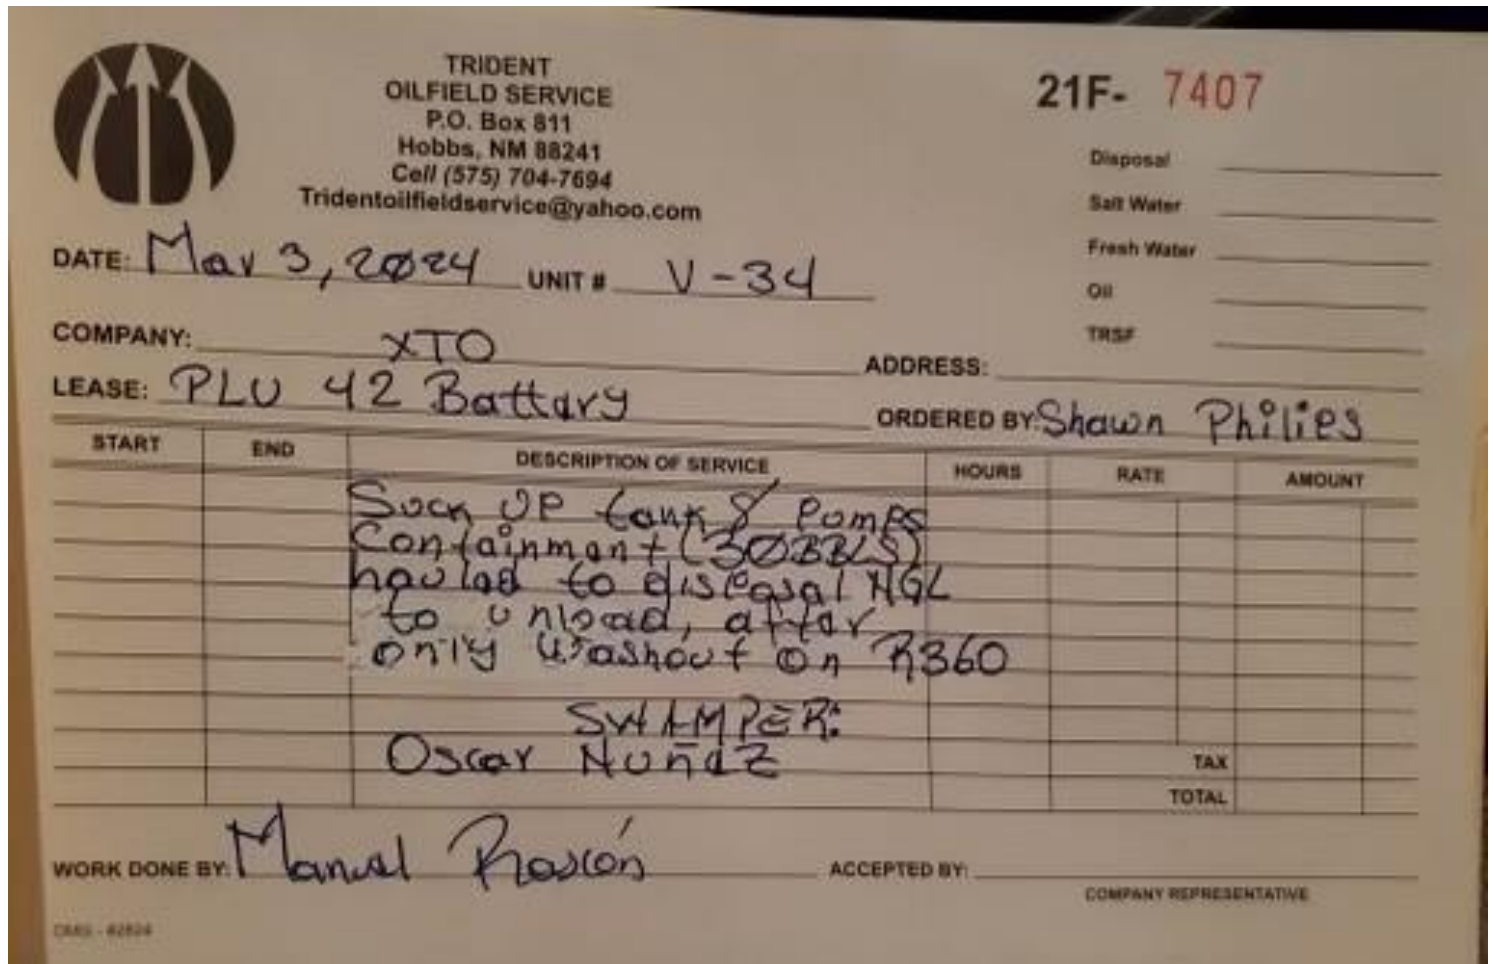 TRIDENT
OILFIELD SERVICE
P.O. Box 811
Hobbs, NM 88241
Cell (575) 704-7694
Tridentoilfieldservice@yahoo.com
21F- 7407
Disposal
Salt Water
Fresh Water
Oil
TRSF
DATE: Mar 3, 2024 UNIT # V-34
COMPANY: XTO
ADDRESS:
LEASE: PLU 42 Battery
ORDERED BY: Shawn Philips
START END DESCRIPTION OF SERVICE HOURS RATE AMOUNT
Suck up tank & Pumps
Containment (30BBLS)
hauled to disposal NGL
to unload, after
only washout on R360
SWAMPER:
Oscar Nuñez
TAX
TOTAL
WORK DONE BY: Manuel Rascón
ACCEPTED BY:
COMPANY REPRESENTATIVE